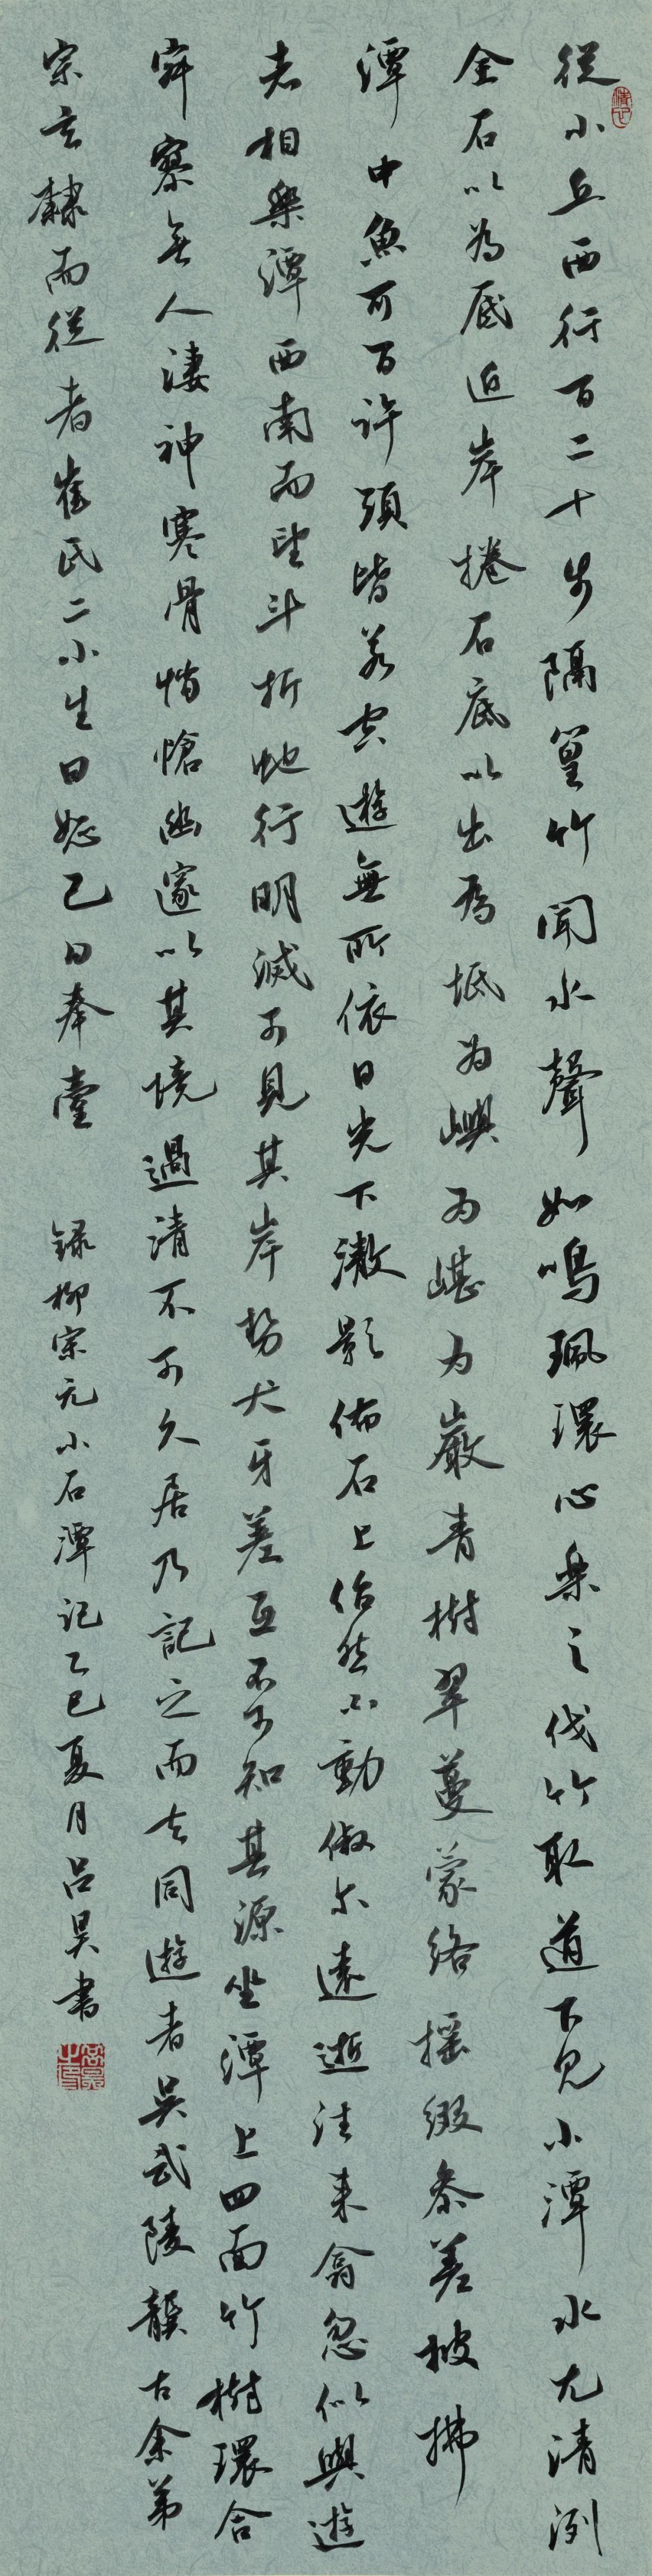 從小丘西行百二十步隔篁竹聞水聲如鳴珮環心樂之伐竹取道下見小潭水尤清洌
全石以為底近岸捲石底以出為坻為嶼為嵁為巖青樹翠蔓蒙絡搖綴參差披拂
潭中魚可百許頭皆若空遊無所依日光下澈影佈石上佁然不動俶尔遠逝往来翕忽似與遊
者相樂潭西南而望斗折蛇行明滅可見其岸勢犬牙差互不可知其源坐潭上四面竹樹環合
寂寥无人淒神寒骨悄愴幽邃以其境過清不可久居乃記之而去同遊者吳武陵龔古余弟
宗玄隸而從者崔氏二小生曰恕己曰奉壹 録柳宗元小石潭记乙巳夏月吕昊書